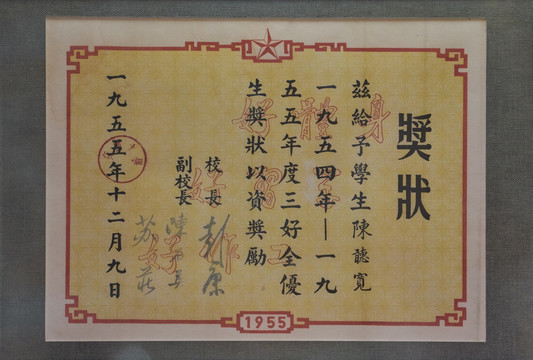 獎狀
茲給予學生陳聽寬
一九五四年—一九
五五年度三好全優
生獎狀以資獎勵
校長 彭康
副校長
蘇莊
一九五五年十二月九日
身體好
1955